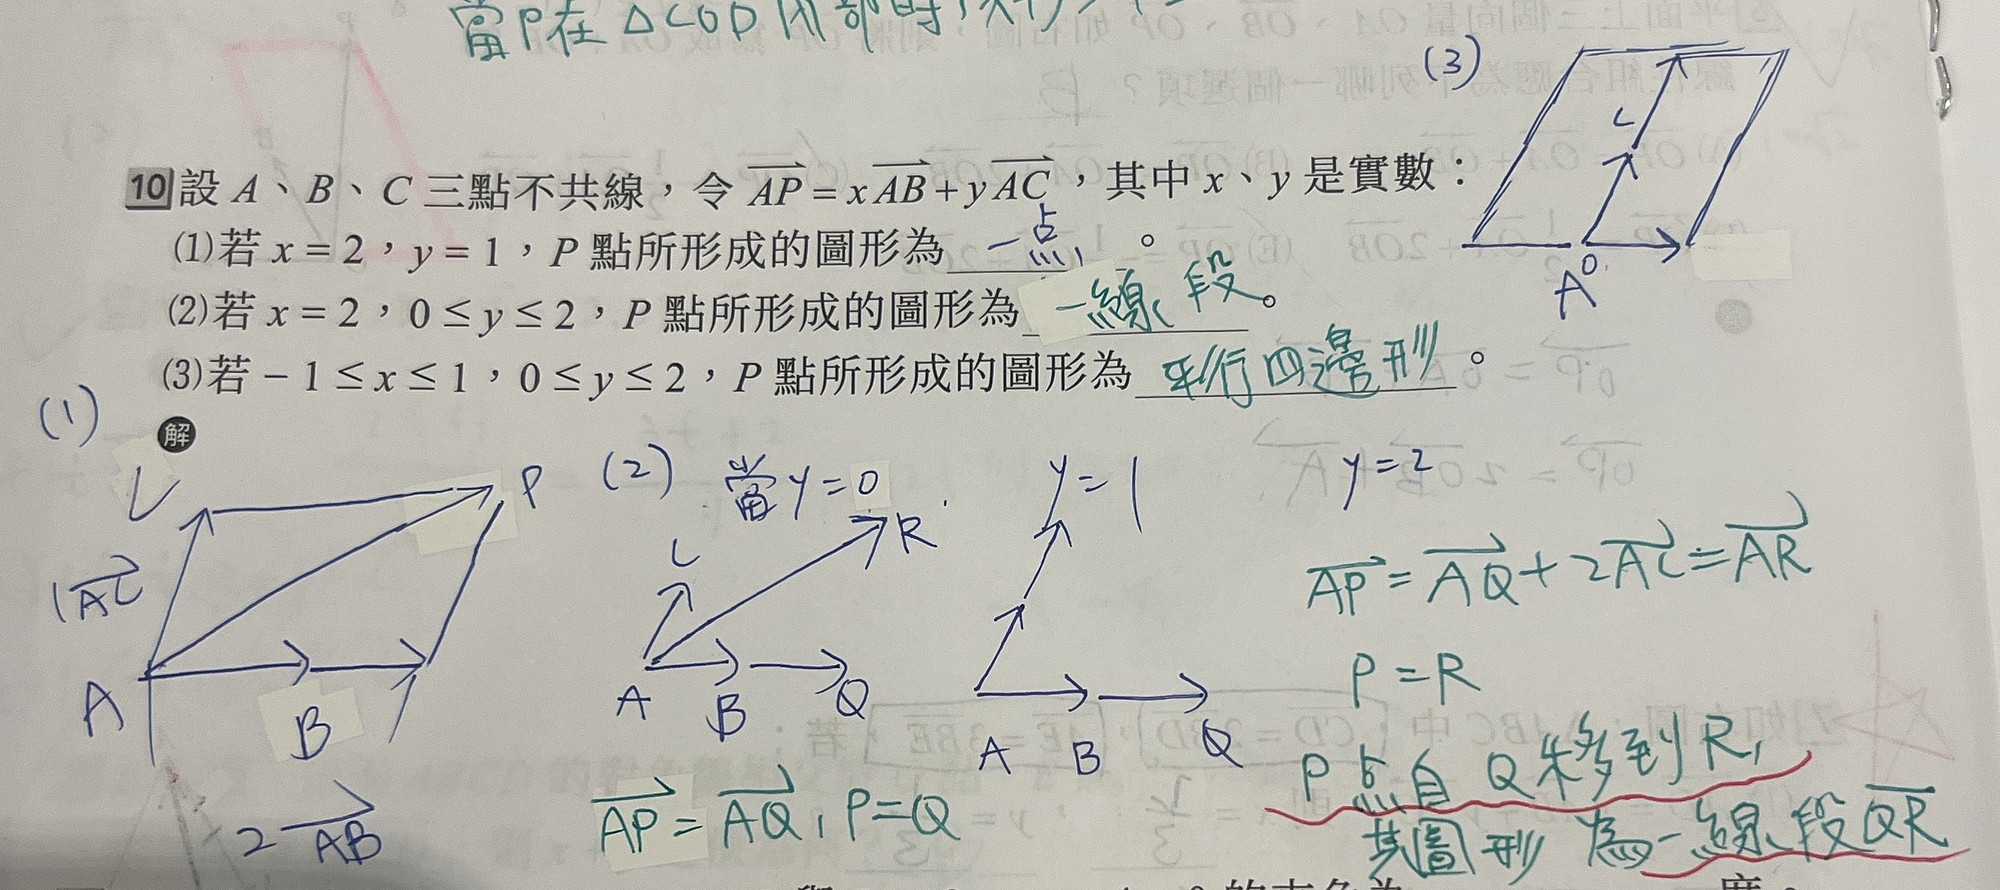 當P在△COD內部時，
(3)
10 設 A、B、C 三點不共線，令 AP = xAB + yAC，其中 x、y 是實數：
(1)若 x = 2，y = 1，P 點所形成的圖形為 一点 。
(2)若 x = 2，0 ≤ y ≤ 2，P 點所形成的圖形為 一線段 。
(3)若 −1 ≤ x ≤ 1，0 ≤ y ≤ 2，P 點所形成的圖形為 平行四邊形 。
C
A 0
(1)
解
C P
1AC
A B
2AB
(2) 當y=0
C R
A B Q
AP = AQ, P=Q
y=1
A B Q
y=2
AP = AQ + 2AC = AR
P=R
P点自Q移到R,
其圖形為一線段QR